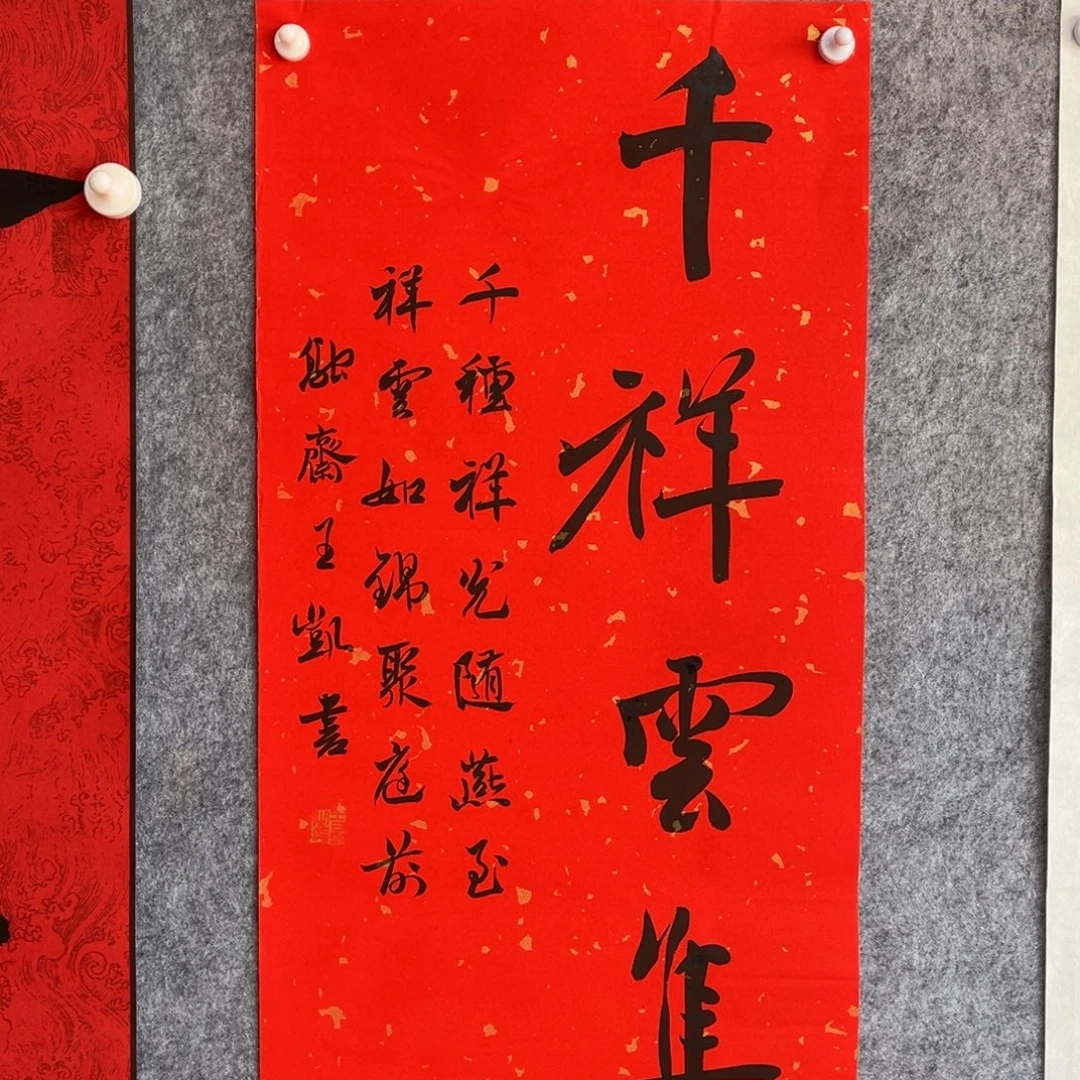 千祥雲
千種祥光随燕至
祥雲如錦聚庭前
融齋王凱書